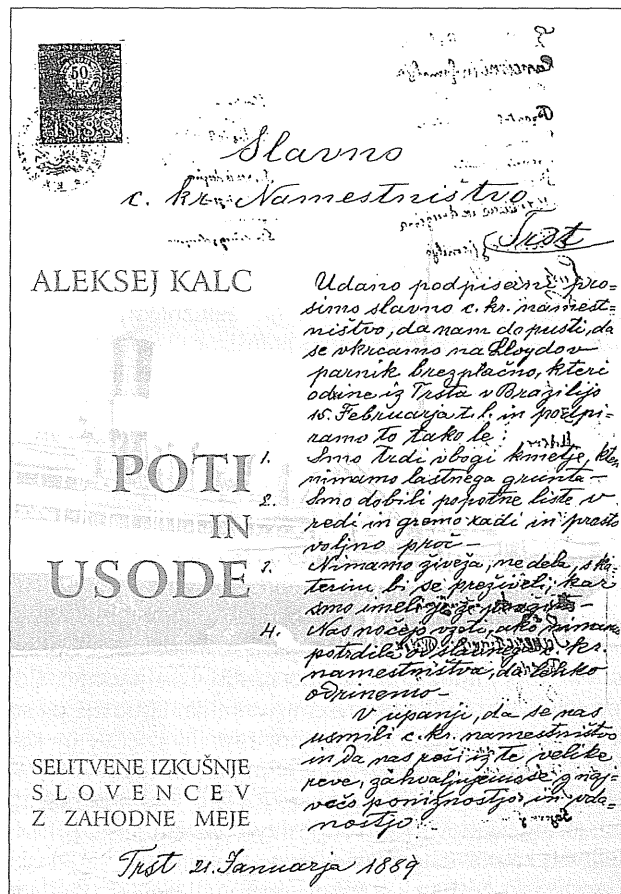 50
1888
Slavno
c. kr. Namestništvo
Trst
ALEKSEJ KALC
POTI
IN
USODE
SELITVENE IZKUŠNJE
SLOVENCEV
Z ZAHODNE MEJE
Udano podpisani pro=
simo slavno c. kr. namest=
ništvo, da nam dopusti, da
se vkrcamo na Lloydov
parnik brezplačno, kteri
odrine iz Trsta v Brazilijo
15. Februarja t. l. in podpi=
ramo to tako le:
1. Smo trdi vbogi kmetje, kter
nimamo lastnega grunta —
2. Smo dobili popotne liste v
redi in gremo radi in prosto
voljno proč —
3. Nimamo živeža, ne dela, s ka=
terim bi se preživeli, kar
smo imeli je že
4. Nas nočejo vzeti, ako nimamo
potrdila od slavnega c. kr.
namestništva, da lehko
odrinemo —
V upanji, da se nas
usmili c. kr. namestništvo
in da nas reši iz te velike
reve, zahvaljujemo se z naj=
večo ponižnostjo in vda=
nostjo
Trst 21. Januarja 1889